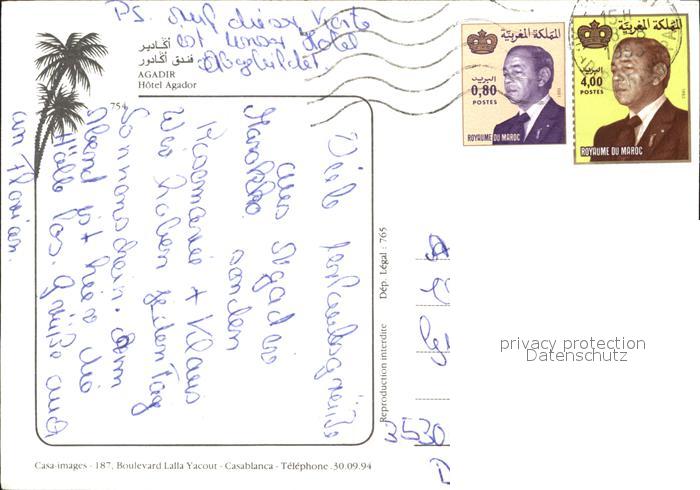 PS. Auf dieser Karte
ist unser Hotel
abgebildet.
أكادير
فندق أكادور
AGADIR
Hôtel Agador
754
Viele
aus Agadir
Marokko
senden
Rosemarie + Klaus
Wir haben jeden Tag
Sonnenschein. Am
Abend ist hier die
Hölle los. Grüße auch
an Florian.
Dép. Légal : 765
Reproduction interdite
3530
D
Casa-images - 187, Boulevard Lalla Yacout - Casablanca - Téléphone .30.09.94
المملكة المغربية
البريد
0,80
POSTES
ROYAUME DU MAROC
المملكة المغربية
البريد
4,00
POSTES
ROYAUME DU MAROC
privacy protection
Datenschutz